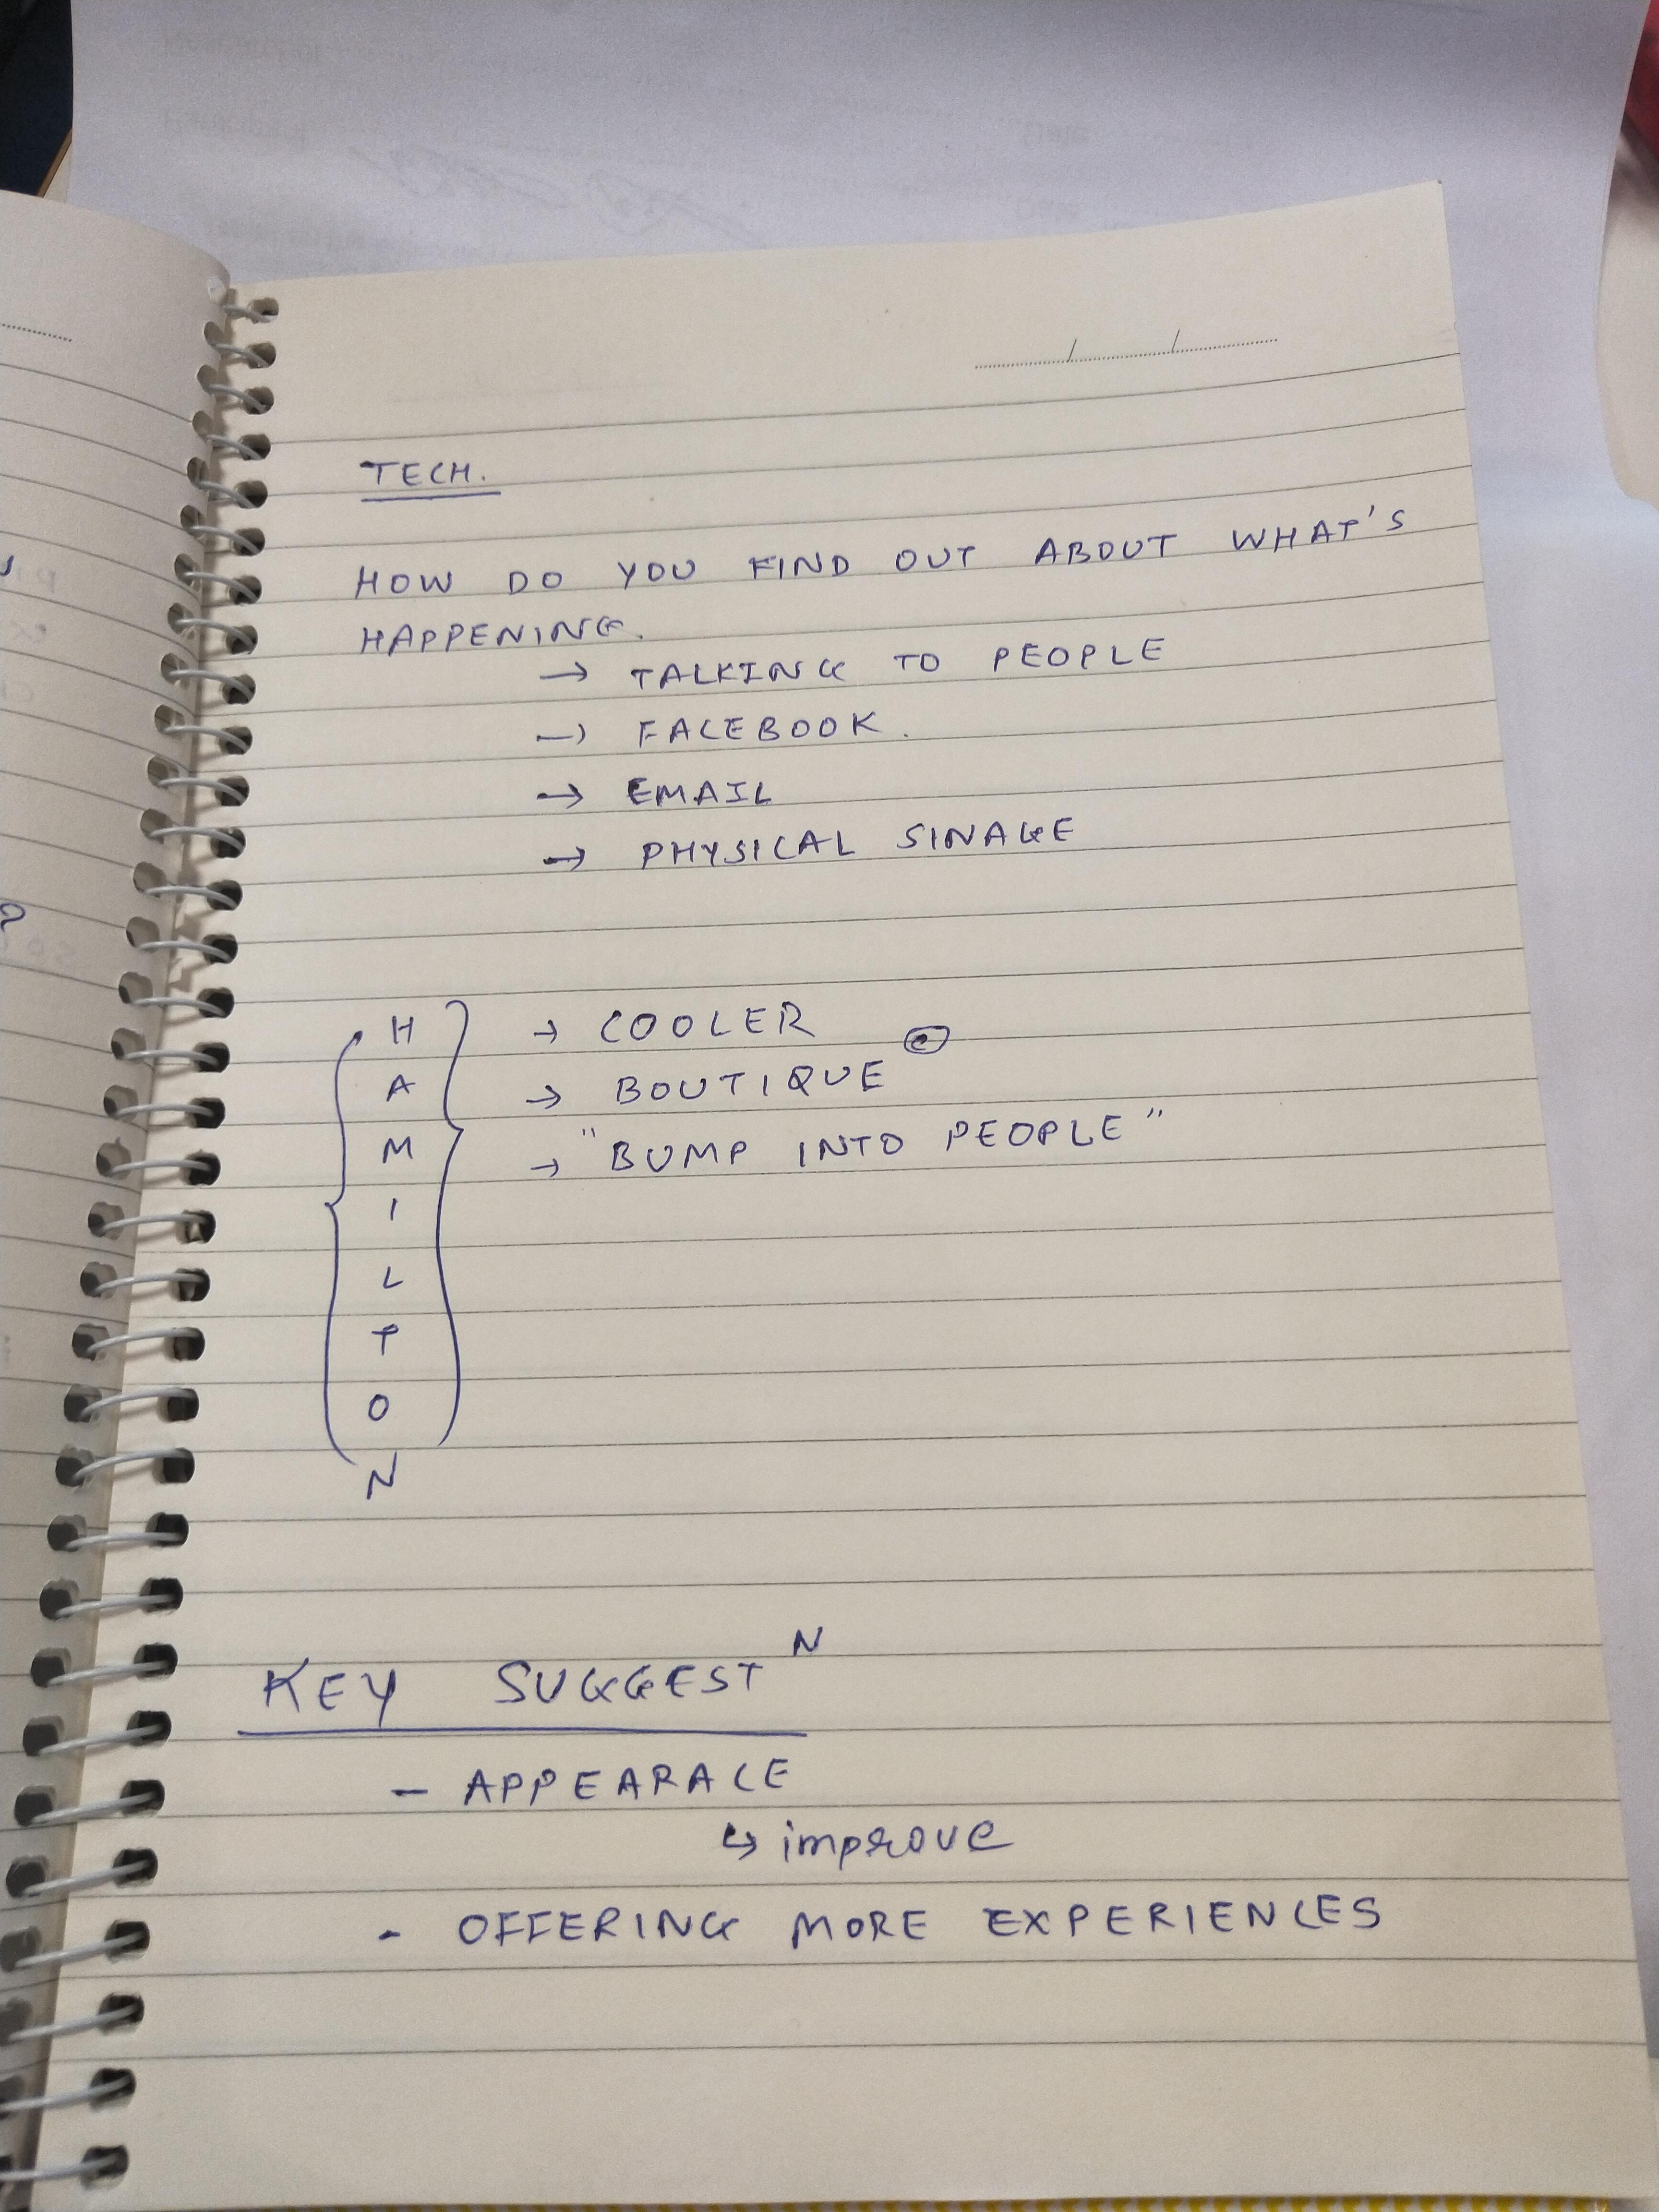 TECH.
HOW DO YOU FIND OUT ABOUT WHAT'S
HAPPENING.
→ TALKING TO PEOPLE
→ FACEBOOK.
→ EMAIL
→ PHYSICAL SINAGE
H
A
M
I
L
T
O
N
→ COOLER
→ BOUTIQUE
→ "BUMP INTO PEOPLE"
KEY SUGGEST N
- APPEARACE
↳ improve
- OFFERING MORE EXPERIENCES